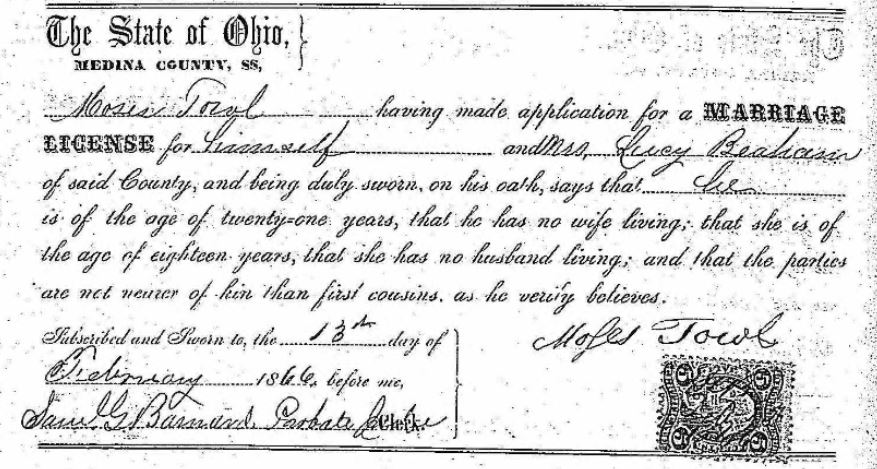 The State of Ohio, }
MEDINA COUNTY, SS,
Moses Towl having made application for a MARRIAGE
LICENSE for himself and Mrs, Lucy Beaham
of said County, and being duly sworn, on his oath, says that he
is of the age of twenty=one years, that he has no wife living; that she is of
the age of eighteen years, that she has no husband living; and that the parties
are not nearer of kin than first cousins, as he verily believes.
Subscribed and Sworn to, the 13th day of
February 1866. before me,
Saml G Barnard Probate Judge Clerk.
Moses Towl
5 5
5 5